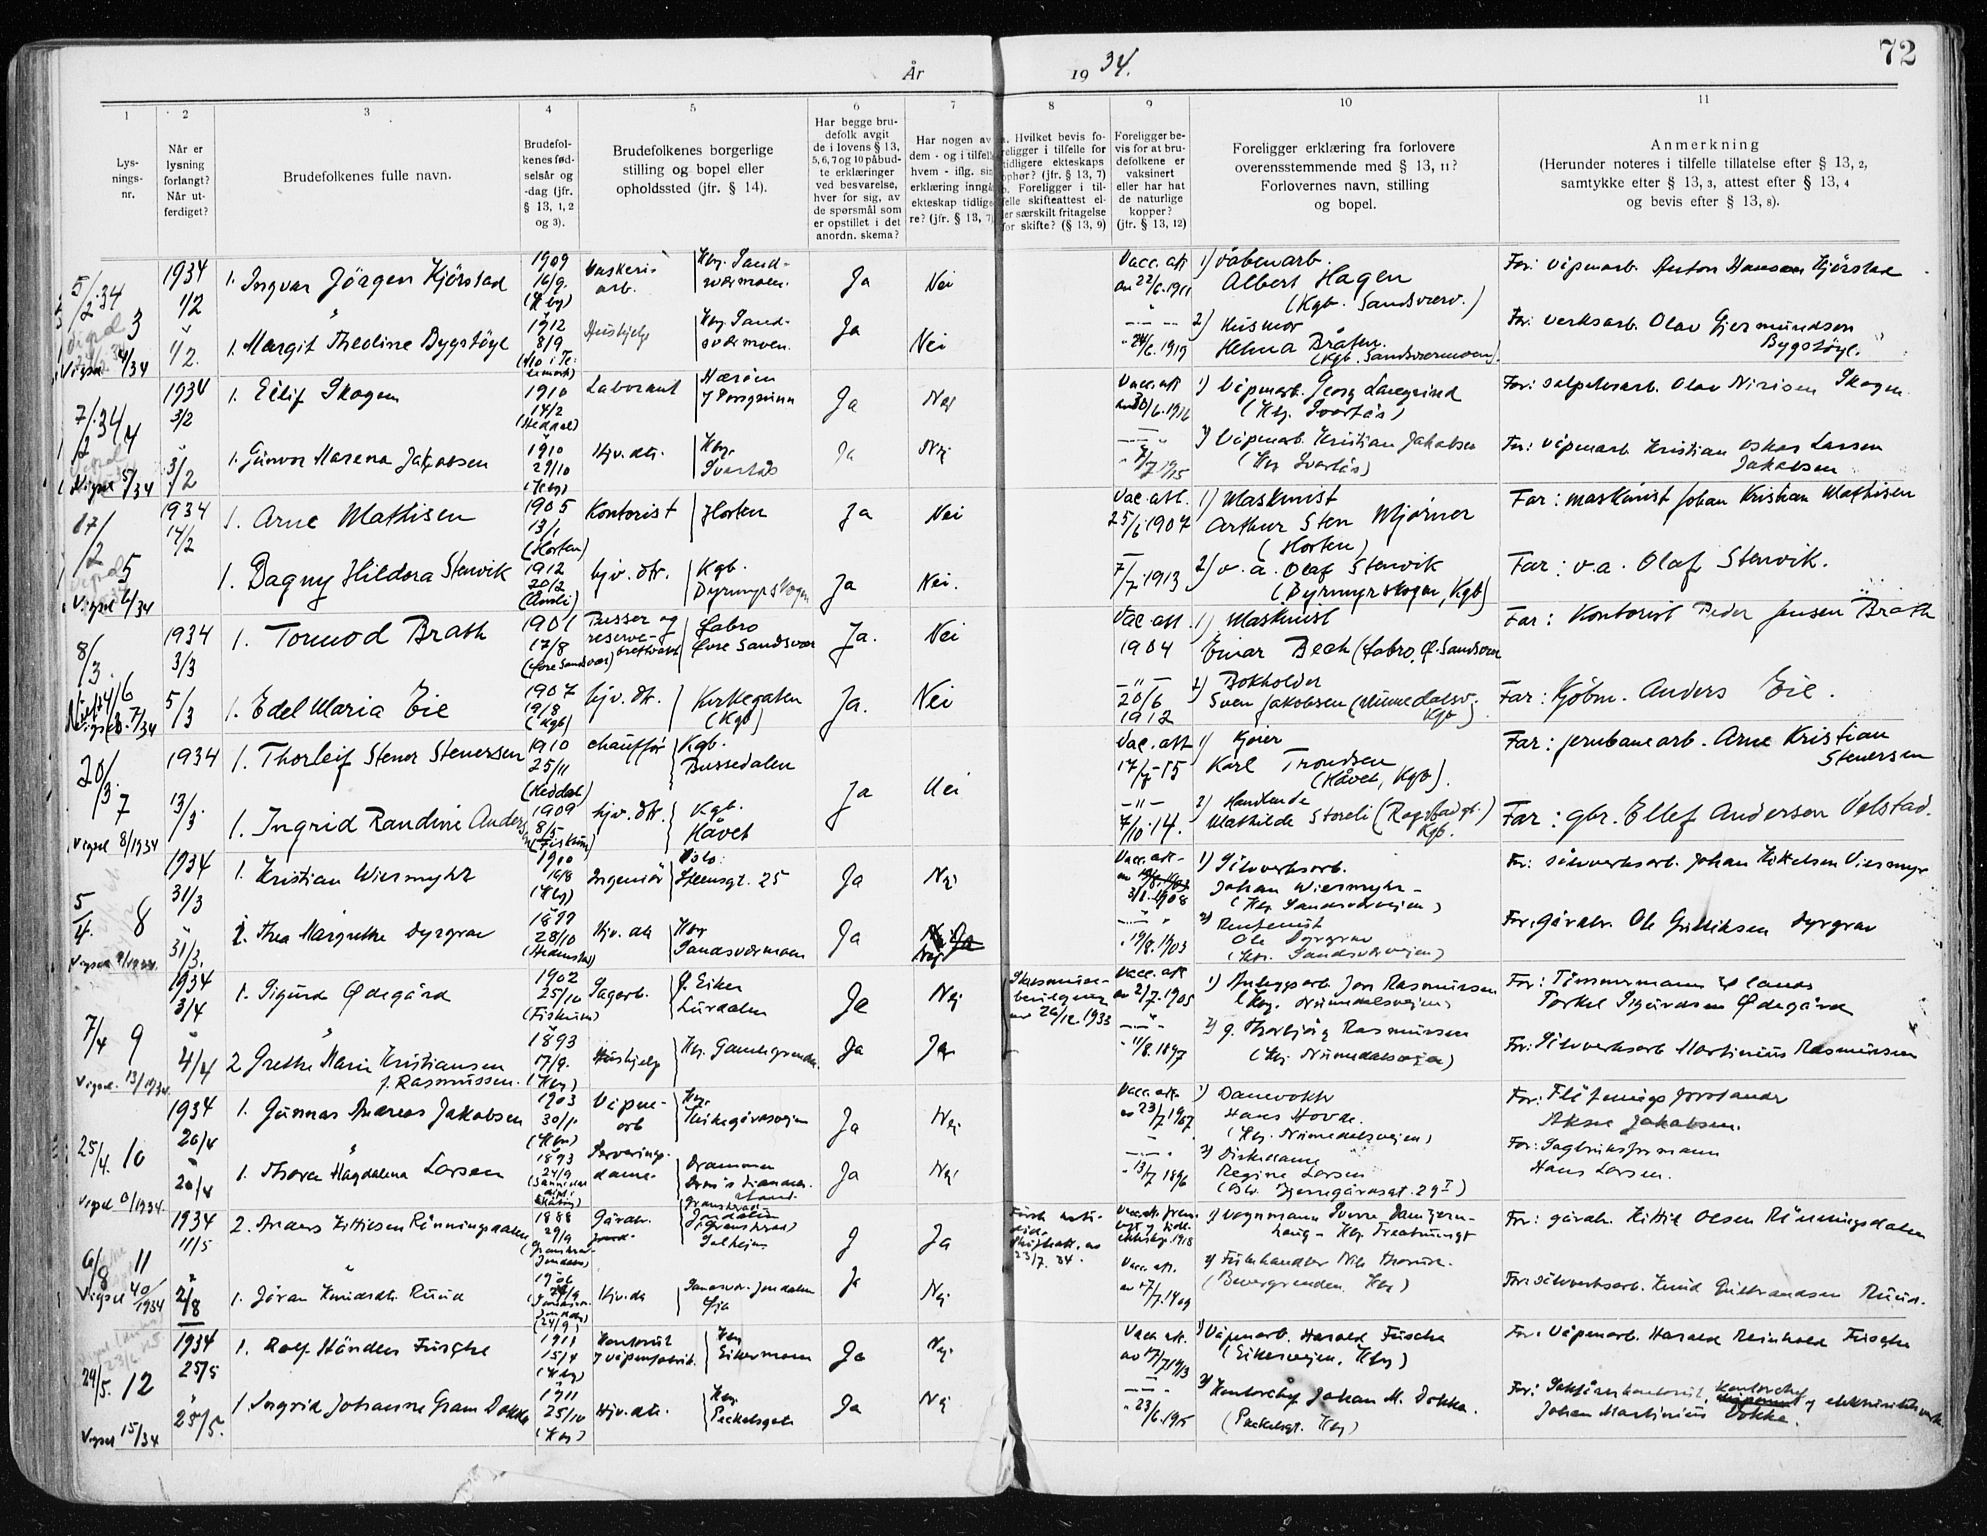 72
År 1934.
1 2 3 4 5 6 7 8 9 10 11
Lys-
nings-
nr.
Når er
lysning
forlangt?
Når ut-
ferdiget?
Brudefolkenes fulle navn.
Brudefol-
kenes fød-
selsår og
-dag (jfr.
§ 13, 1, 2
og 3).
Brudefolkenes borgerlige
stilling og bopel eller
opholdssted (jfr. § 14).
Har begge bru-
defolk avgit
de i lovens § 13,
5, 6, 7 og 10 påbud-
te erklæringer
ved besvarelse,
hver for sig, av
de spørsmål som
er opstillet i det
anordn. skema?
Har nogen av
dem - og i tilfelle
hvem - iflg. sin
erklæring inngå
ekteskap tidlige
re? (jfr. § 13, 7)
a. Hvilket bevis fo-
religger i tilfelle for
tidligere ekteskaps
ophør? (jfr. § 13, 7)
b. Foreligger i til-
felle skifteattest el-
ler særskilt fritagelse
for skifte? (§ 13, 9)
Foreligger be-
vis for at bru-
defolkene er
vaksinert
eller har hat
de naturlige
kopper?
(jfr. § 13, 12)
Foreligger erklæring fra forlovere
overensstemmende med § 13, 11?
Forlovernes navn, stilling
og bopel.
Anmerkning
(Herunder noteres i tilfelle tillatelse efter § 13, 2,
samtykke efter § 13, 3, attest efter § 13, 4
og bevis efter § 13, 8).
5/2.34
3
Vigsel 4/34
1934
1/2
1. Ingvar Jörgen Hjörstad
1909
16/9.
(Kbg)
Vaskeri-
arb.
Kbg. Sand-
sværmoen.
Ja
Nei
Vacc. att
av 22/6.1911
1) Våbenarb.
Albert Hagen
(Kgb. Sandsværv.)
Far: våpenarb. Anton Hansen Hjörstad
1/2.
1. Margit Theoline Bygstöyl
1912
8/9
(Mo i Te-
lemark)
Hushjelp
Kbg. Sand-
sværmoen.
Ja
Nei
24/6.1919
2) Husmor
Helma Bråten.
(Kgb. Sandsværmoen).
Far: verksarb. Olav Gjermundsen
Bygstöyl.
7/2.34
4
Vigsel 5/34
1934
3/2
1. Eilif Skogen
1910
14/2
(Heddal)
Laborant
Herøen
Porsgrunn
Ja
Nei
Vacc. att
30/6.1916
1) Våpenarb. Georg
(Kbg. Svartås)
Far: salpeterarb. Olav Nirisen Skogen
3/2
1. Gunvor Marena Jakobsen
1910
29/10
(Kbg)
Hjv. dtr.
Kbg.
Svartås
Ja
Nei
7/7.1915
2) Våpenarb. Kristian Jakobsen
(Kbg Svartås)
Far: våpenarb Kristian Oskar Larsen
Jakobsen
17/2
5
Vigsel 6/34
1934
14/2
1. Arne Mathisen
1905
13/1
(Horten)
Kontorist
Horten
Ja
Nei
Vac. att.
25/6 1907
1) Maskinist
Arthur Sten Mjörner
(Horten)
Far: maskinist Johan Kristian Mathisen
1. Dagny Hildora Stenvik
1912
20/2
(Åmli)
hjv. dtr.
Kgb.
Dyrmyrskogen
Ja
Nei.
7/7.1913
2) v. a. Olaf Stenvik
(Dyrmyrskogen, Kgb)
Far: v.a. Olaf Stenvik.
8/3.
6
Vigsel 7/34
1934
3/3
1. Tormod Brath
1901
17/8
(Øvre Sandsvær)
Pusser og
reserve-
brettvakt
Labro
Øvre Sandsvær
Ja.
Nei
Vac. att.
1904
1) Maskinist
Einar Bech (Labro, Ø. Sandsvær
Far: Kontorist Peder Jensen Brath
5/3
1. Edel Maria Eie
1907
19/8
(Kgb)
hjv. dtr.
Kirkegaten
(Kgb)
Ja.
Nei
20/6
1912
2) Bokholder
Sven Jakobsen (Numedalsv.
Kgb)
Far: Kjöbm. Anders Eie.
20/3.
7
Vigsel 8/1934
1934
1. Thorleif Stener Stenersen
1910
25/11
(Heddal)
chauffør
Kgb.
Bussedalen
Ja
Nei
Vac. att
17/7-15
1) Kjører
Karl Trondsen
(Håvet, Kgb).
Far: Jernbanearb. Arne Kristian
Stenersen
13/3.
1. Ingrid Randine Andersen
1909
8/5
(Fiskum)
hjv. dtr.
Kgb.
Håvet
7/10.14.
2) Handlende
Mathilde Storeli
Kgb.
Far: gbr. Ellef Andersen Velstad.
5/4.
8
Vigsel 9/1934
1934
31/3
1. Kristian Wiersmyhr
1900
16/8
(Kbg)
Ingeniør
Oslo:
Steensgt. 25
Ja
Nei
Vacc. att.
3/8.1908
1) Sølvverksarb.
Johan Wiersmyhr
(Kbg Sandsværveien)
Far: sølvverksarb. Johan Kittelsen Viersmyr
31/3.
1. Thea Margrethe Dyrgrav
1899
28/10
(Hedenstad)
Hjv. dtr
Kbg
Sandsværmoen
Ja
Nei
19/8.1903
2) Rentenist
Ole Dyrgrav
(Kbg. Sandsværveien)
Far: gårdbr. Ole Gulliksen Dyrgrav
7/4
9
Vigsel. 13/1934.
1934
3/4
1. Sigurd Ødegård
1902
25/10
(Fiskum)
Sagarb.
Ø. Eiker
Lurdalen
Ja
Nei
Skilsmisse-
bevilgning
av 20/12.1933
Vacc. att
av 2/7.1905
1) Anleggsarb Jon Rasmussen
(Kbg. Numedalsveien)
Far: Tömmermann
Torkel Sigurdsen Ødegård
4/4
2 Grethe Marie Kristiansen
f. Rasmussen.
1893
17/9.
(Kbg)
Hushjelp
Kbg. Gamlegrenden
Ja
Ja
11/8.1897
2) g. Thorbjörg Rasmussen
(Kbg Numedalsveien)
Far: Sølvverksarb Martinius Rasmussen
25/4.
10
1934
20/4
1. Gunnar Andreas Jakobsen
1903
30/11
(Kbg)
Våpen-
arb
Kbg.
Kirkegårdsveien
Ja
Nei
Vacc. att.
av 23/7 1907
1) Damvokter
Hans Hovde.
(Kbg. Numedalsveien)
Far: Flötnings formann
Jakobsen.
20/4
1. Thora Magdalena Larsen
1893
24/9
Serverings-
dame
Drammen
Ja
Nei
13/7 1896
2) Diskedame
Regine Larsen
(Oslo. Bjerregårdsgt. 29 I)
Far: Sagbruksformann
Hans Larsen.
6/8
11
Vigsel 40/1934
1934
11/5
2. Anders Kittilsen Rönningsdalen
1888
29/9
Gårdbr.
Solheim
J
Ja
23/7.34.
1) Vognmann Sverre
Far: gårdbr. Kittil Olsen Rönningsdalen
2/8
1. Jöran Knudsdtr. Ruud
1906
(24/9)
Hjv. dtr
Ja
Nei
Vacc. att.
av 7/7.1909
2) Fiskehandler Nils Thorud.
(Bevergrenden Kbg)
Far: sølvverksarb. Knud Gulbrandsen Ruud.
24/5.
12
Vigsel 15/34
1934
25/5
1. Rolf Händler Fusche
1911
15/4
(Kbg)
Kontorist
v/ våpenfabrik.
Kbg
Eikermoen
Ja
Nei
Vacc. att.
av 17/7 1913
1) Våpenarb. Harald Fusche
(Eikerveien, Kbg)
Far: Våpenarb. Harald Reinhold Fusche
25/5.
1. Ingrid Johanne Gram Dokka
1911
25/10
(Kbg)
Hjv. dtr.
Kbg
Peckelsgate
Ja
Nei
23/6.1915
2) Kontorchef Johan M. Dokka.
(Peckelsgt. Kbg)
Johan Martinius Dokka.